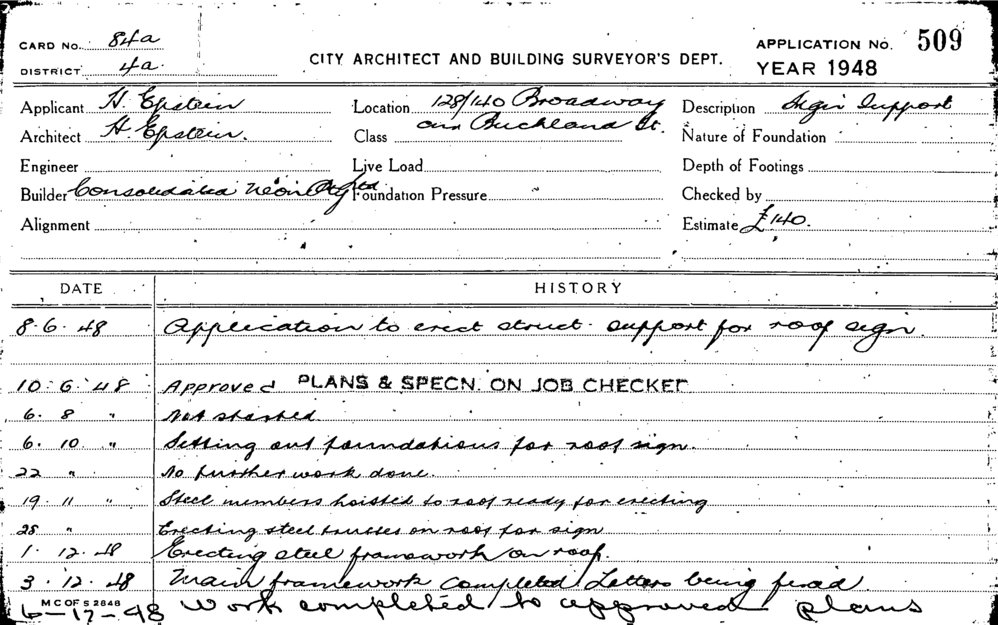 CARD NO. 84a
DISTRICT 4a
CITY ARCHITECT AND BUILDING SURVEYOR'S DEPT.
APPLICATION NO. 509
YEAR 1948
Applicant H. Epstein Location 128/140 Broadway Description Sign Support
Architect H. Epstein. Class cnr Buckland St. Nature of Foundation
Engineer Live Load Depth of Footings
Builder Consolidated Neon Pty Ltd Foundation Pressure Checked by
Alignment Estimate £140.
DATE HISTORY
8.6.48 Application to erect struct. support for roof sign.
10.6.48 Approved PLANS & SPECN. ON JOB CHECKED
6. 8 " Not started
6. 10 " Setting out foundations for roof sign.
22 " No further work done.
19. 11 " Steel members hoisted to roof ready for erecting
25 " Erecting steel trusses on roof for sign
1. 12. 48 Erecting steel framework on roof.
3. 12. 48 Main framework completed Letters being fixed
M C OF S 2848
6-12-48 Work completed to approved plans